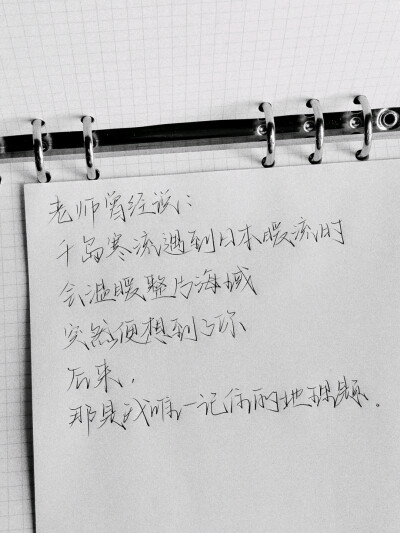 老师曾经说：
千岛寒流遇到日本暖流时
会温暖整片海域
突然便想到了你
后来，
那是我唯一记住的地理题.